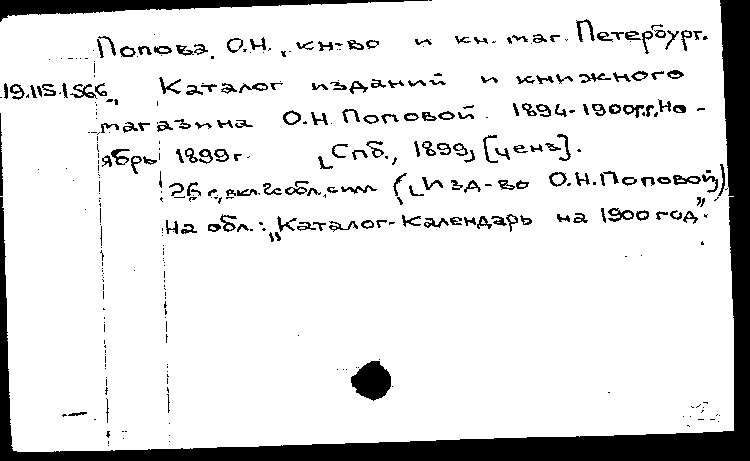 Попова, О.Н., кн-во и кн. маг. Петербург.
19.115.1.566. Каталог изданий и книжного
магазина О.Н. Поповой. 1894-1900г.г. Но-
ябрь 1899г. Спб., 1899, [ценз].
26 с., вкл. обл., илл (Изд-во О.Н.Поповой)
На обл.: „Каталог-календарь на 1900 год".